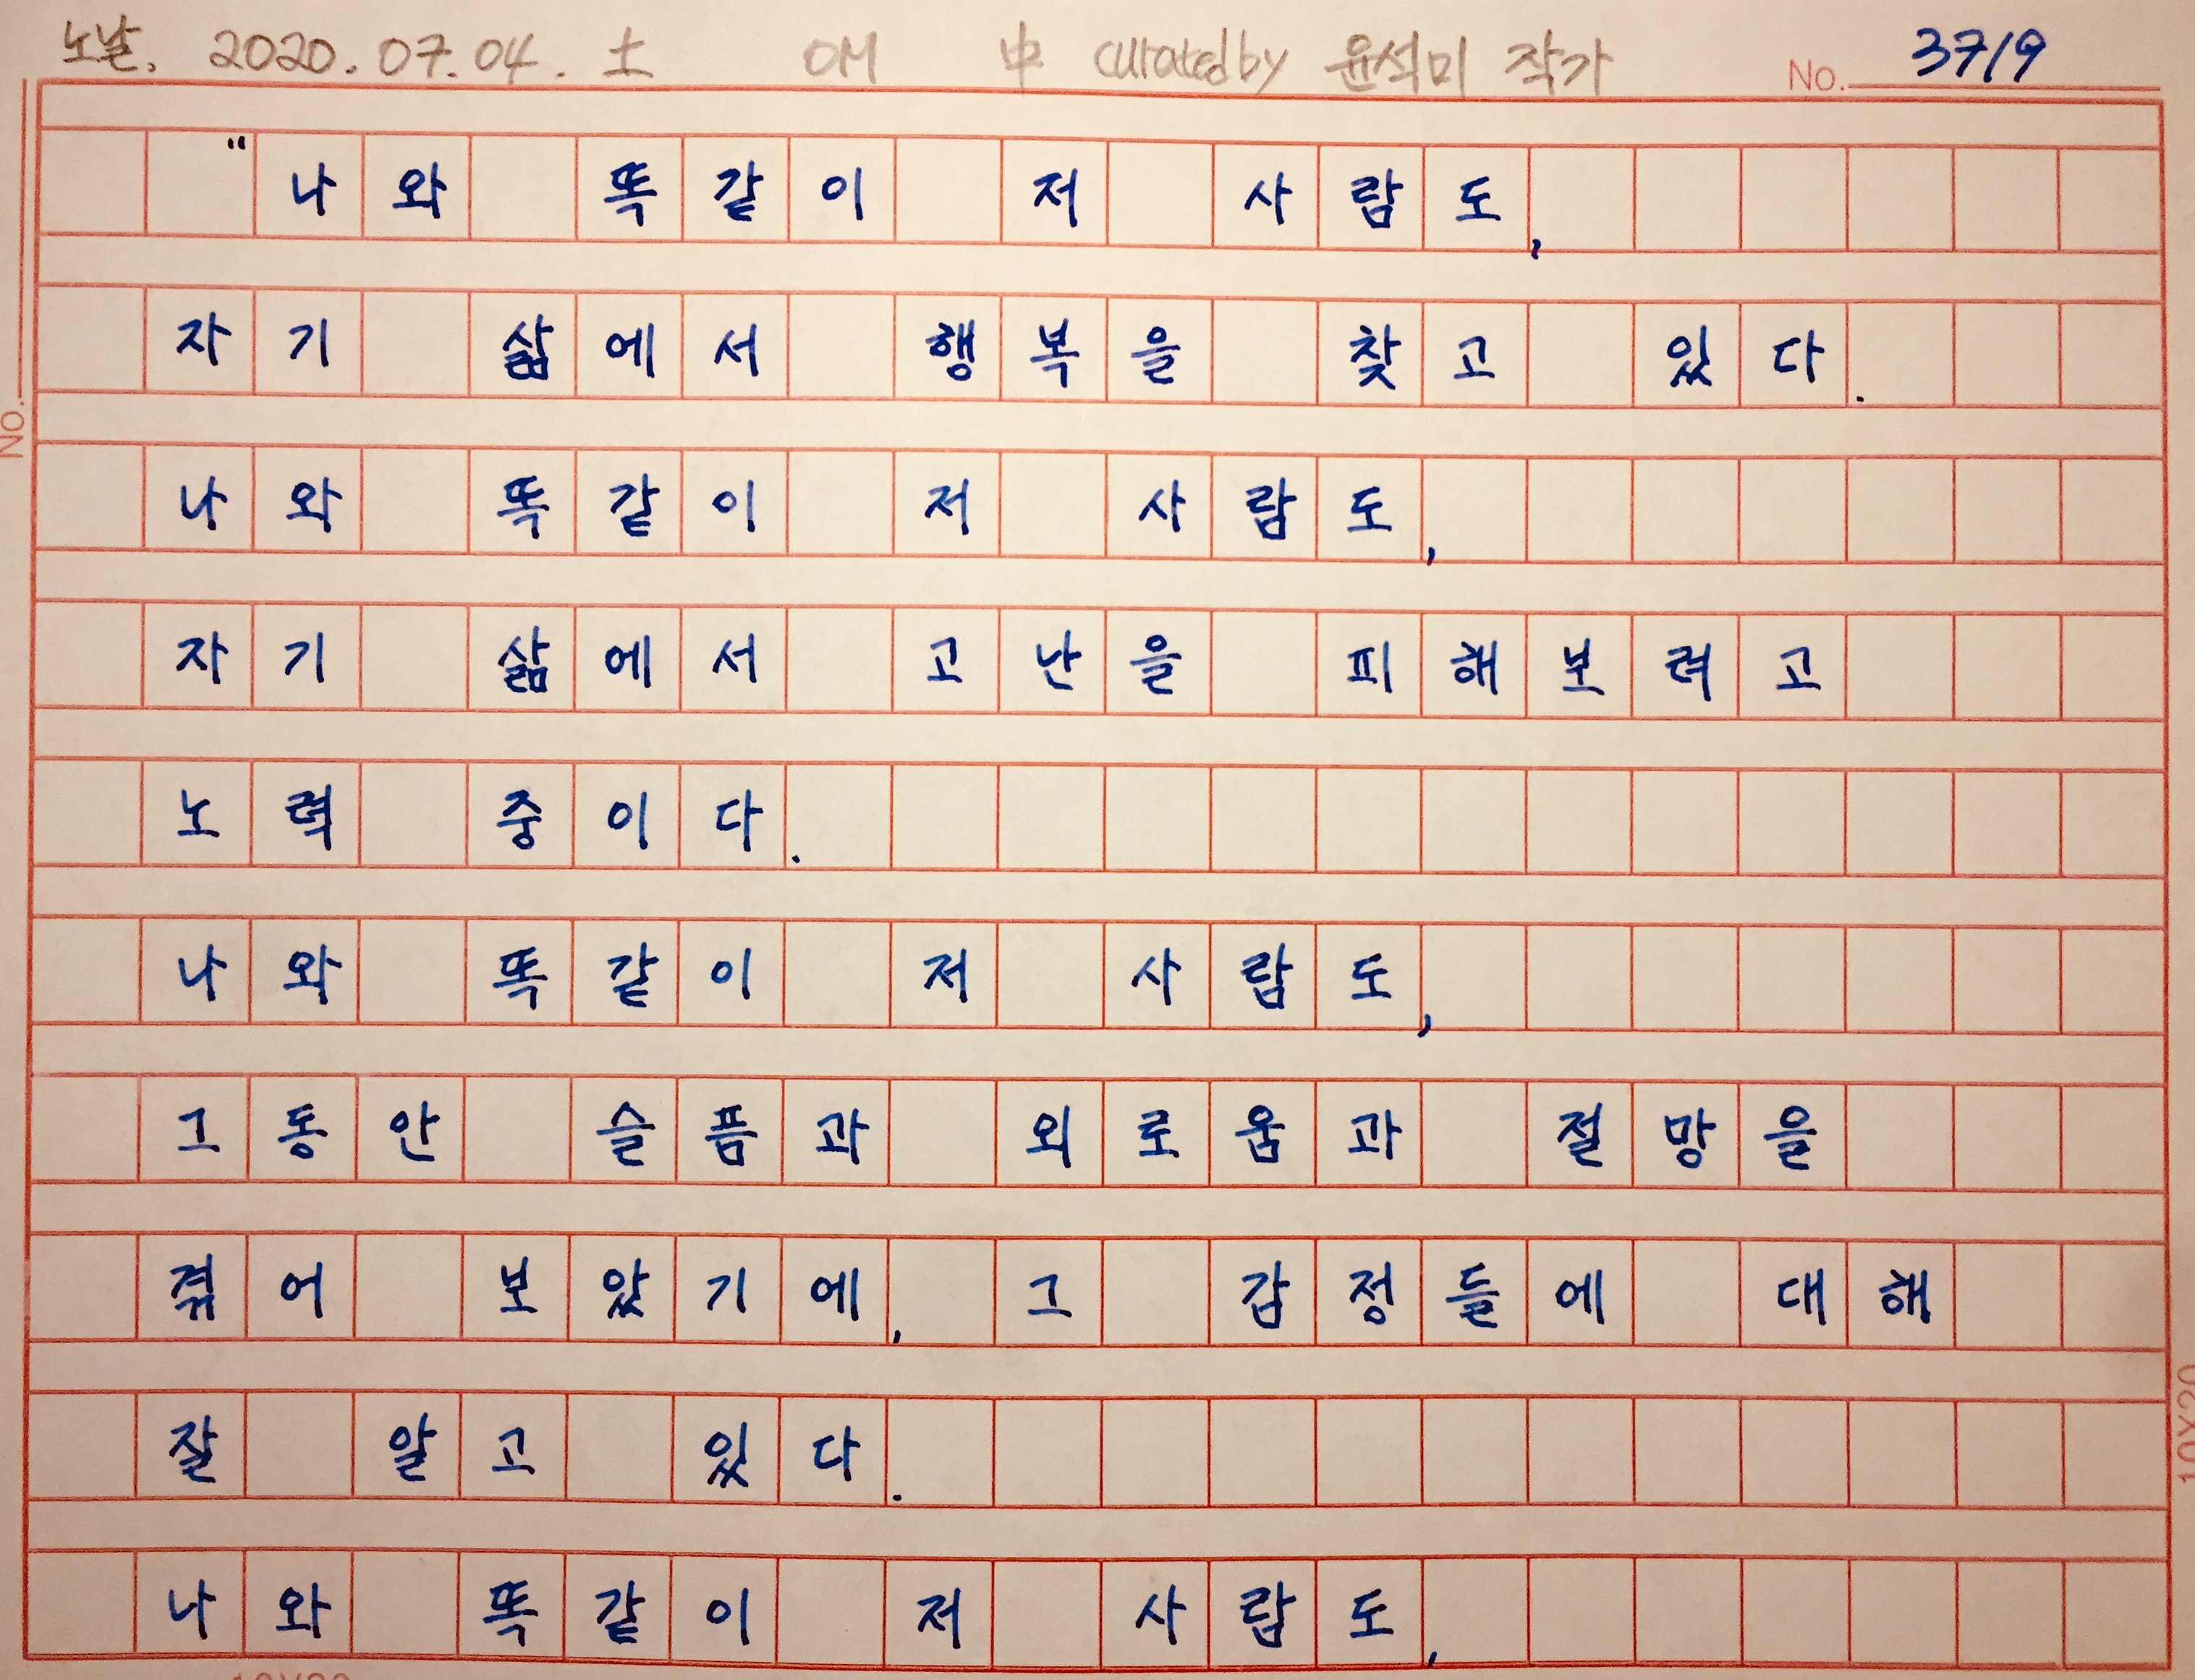 노날. 2020.07.04. 土 OM 中 curated by 윤석미 작가 No. 3719
“나와 똑같이 저 사람도,
자기 삶에서 행복을 찾고 있다.
No.
나와 똑같이 저 사람도,
자기 삶에서 고난을 피해보려고
노력 중이다.
나와 똑같이 저 사람도,
그동안 슬픔과 외로움과 절망을
겪어 보았기에, 그 감정들에 대해
잘 알고 있다.
10X20
나와 똑같이 저 사람도,
10X20